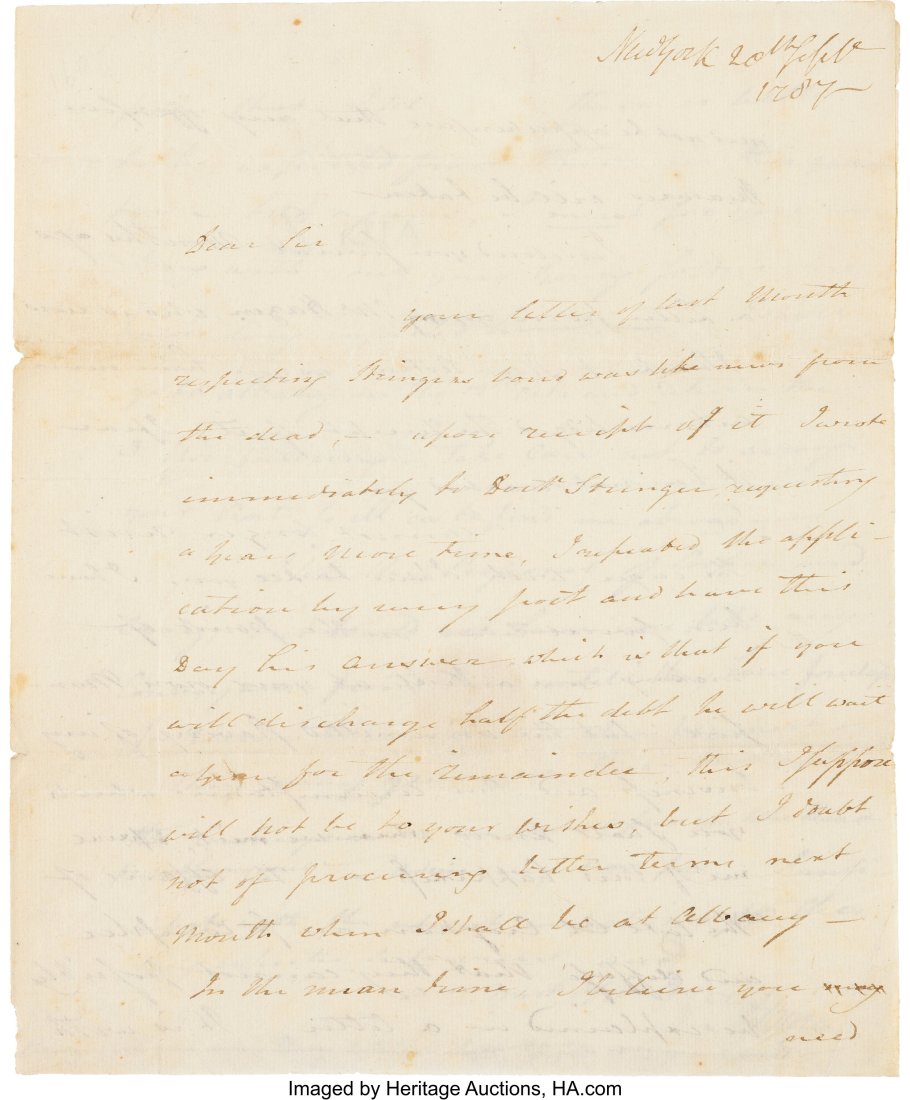 New York 20th Septr
1787 —
Dear Sir
your letter of last Month
respecting Stringers bond was like news from
the dead, — upon receipt of it I wrote
immediately to Doctr Stringer, requesting
a years more time, I repeated the appli-
cation by every post and have this
Day his answer, which is that if you
will discharge half the debt he will wait
a year for the remainder, this I suppose
will not be to your wishes, but I doubt
not of procuring better terms next
Month when I shall be at Albany —
In the mean time, I believe you
need
Imaged by Heritage Auctions, HA.com